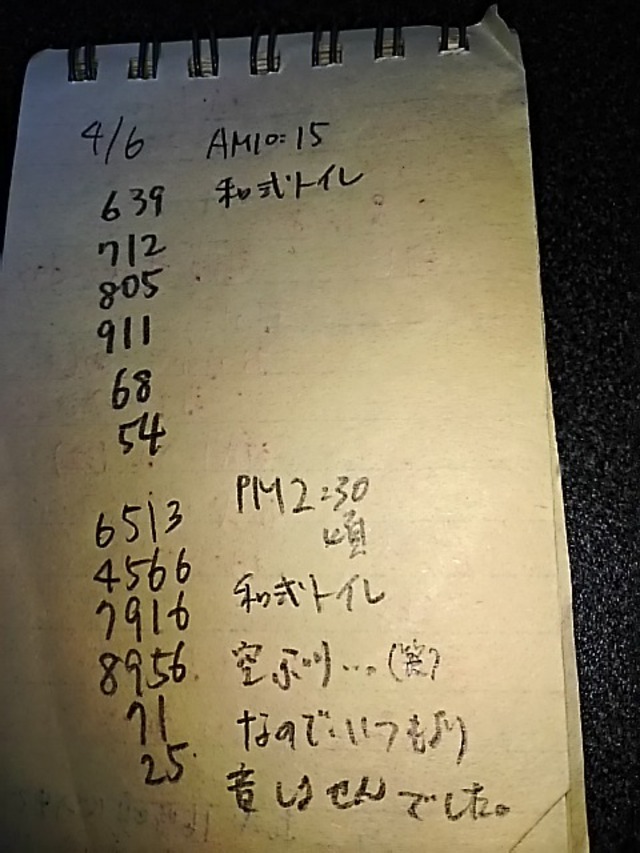 4/6 AM10:15
639 和式トイレ
712
805
911
68
54
PM2:30
6513 頃
4566
7916 和式トイレ
8956. 空ぶり…。(笑)
71 なのでいつもより
25. 音しませんでした。